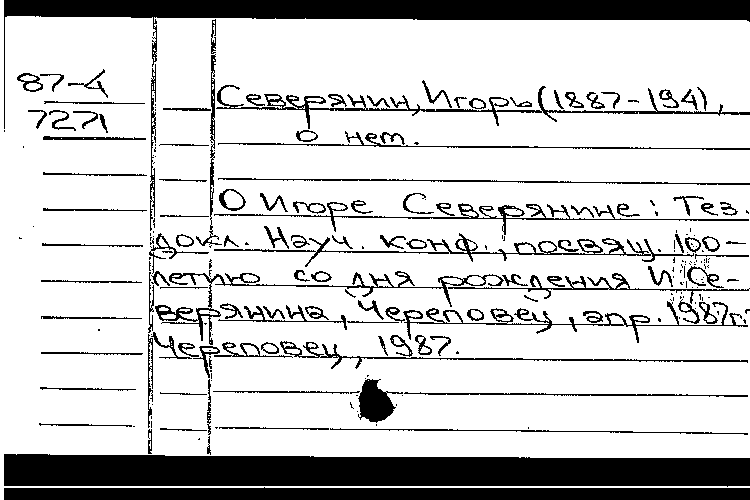 87-4
7271
Северянин, Игорь (1887-194),
о нем.
О Игоре Северянине: Тез.
докл. Науч. конф., посвящ. 100-
летию со дня рождения И. Се-
верянина, Череповец, апр. 1987г.
Череповец, 1987.